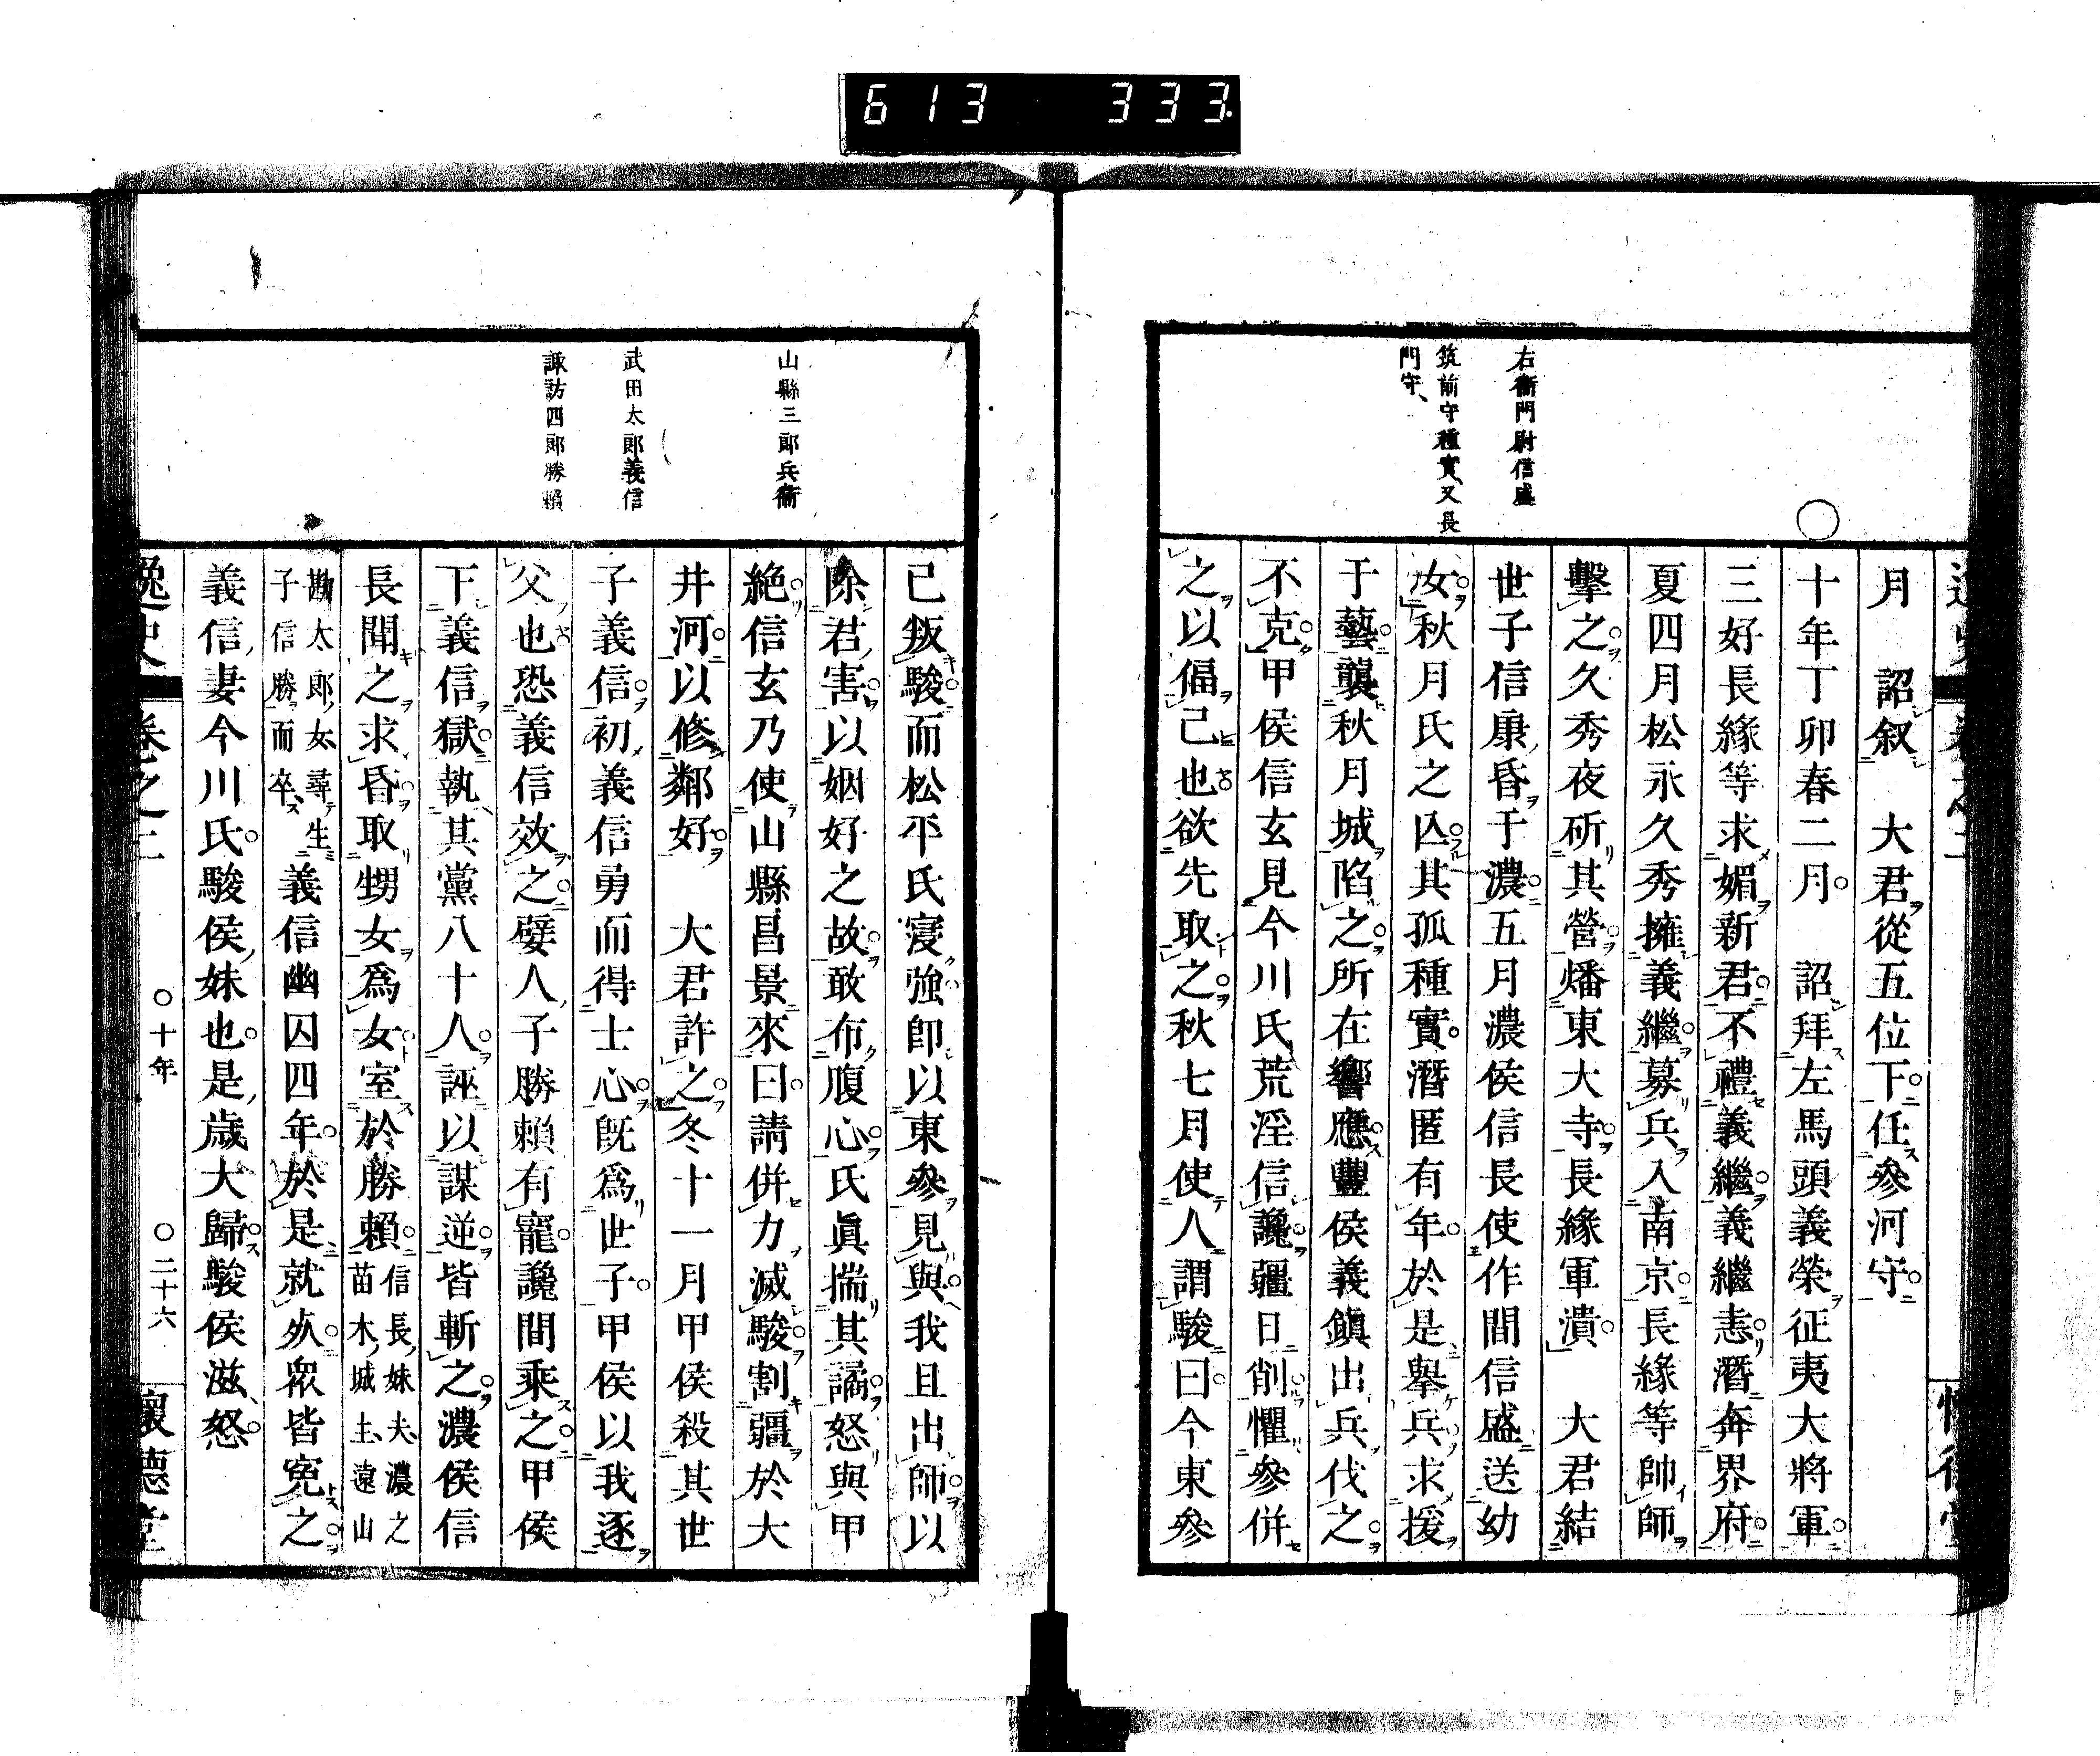 613 333
右衞門尉信盛
筑前守種實、又長
門守、
月　詔叙　大君從五位下任參河守
〇十年丁卯春二月　詔拜左馬頭義榮征夷大將軍
三好長緣等求媚新君不禮義繼義繼恚潛奔界府
夏四月松永久秀擁義繼募兵入南京長緣等帥師
擊之久秀夜斫其營燔東大寺長緣軍潰　大君結
世子信康昏于濃五月濃侯信長使作間信盛送幼
女秋月氏之囚其孤種實潛匿有年於是舉兵求援
于藝襲秋月城陷之所在響應豐侯義鎭出兵伐之
不克甲侯信玄見今川氏荒淫信讒疆日削懼參併
之以偪己也欲先取之秋七月使人謂駿曰今東參
山縣三郎兵衞
武田太郎義信
諏訪四郎勝賴
已叛駿而松平氏寖強卽以東參見與我且出師以
除君害以姻好之故敢布腹心氏眞揣其譎怒與甲
絕信玄乃使山縣昌景來曰請併力滅駿割疆於大
井河以修鄰好　大君許之冬十一月甲侯殺其世
子義信初義信勇而得士心旣爲世子甲侯以我逐
父也恐義信效之嬖人子勝賴有寵讒間乘之甲侯
下義信獄執其黨八十人誣以謀逆皆斬之濃侯信
長聞之求昏取甥女爲女室於勝賴信長妹夫濃之
苗木城主遠山
勘太郎女尋生
子信勝而卒義信幽囚四年於是就死眾皆寃之
義信妻今川氏駿侯妹也是歲大歸駿侯滋怒
逸史　卷之二　〇十年　〇二十六　懷德堂